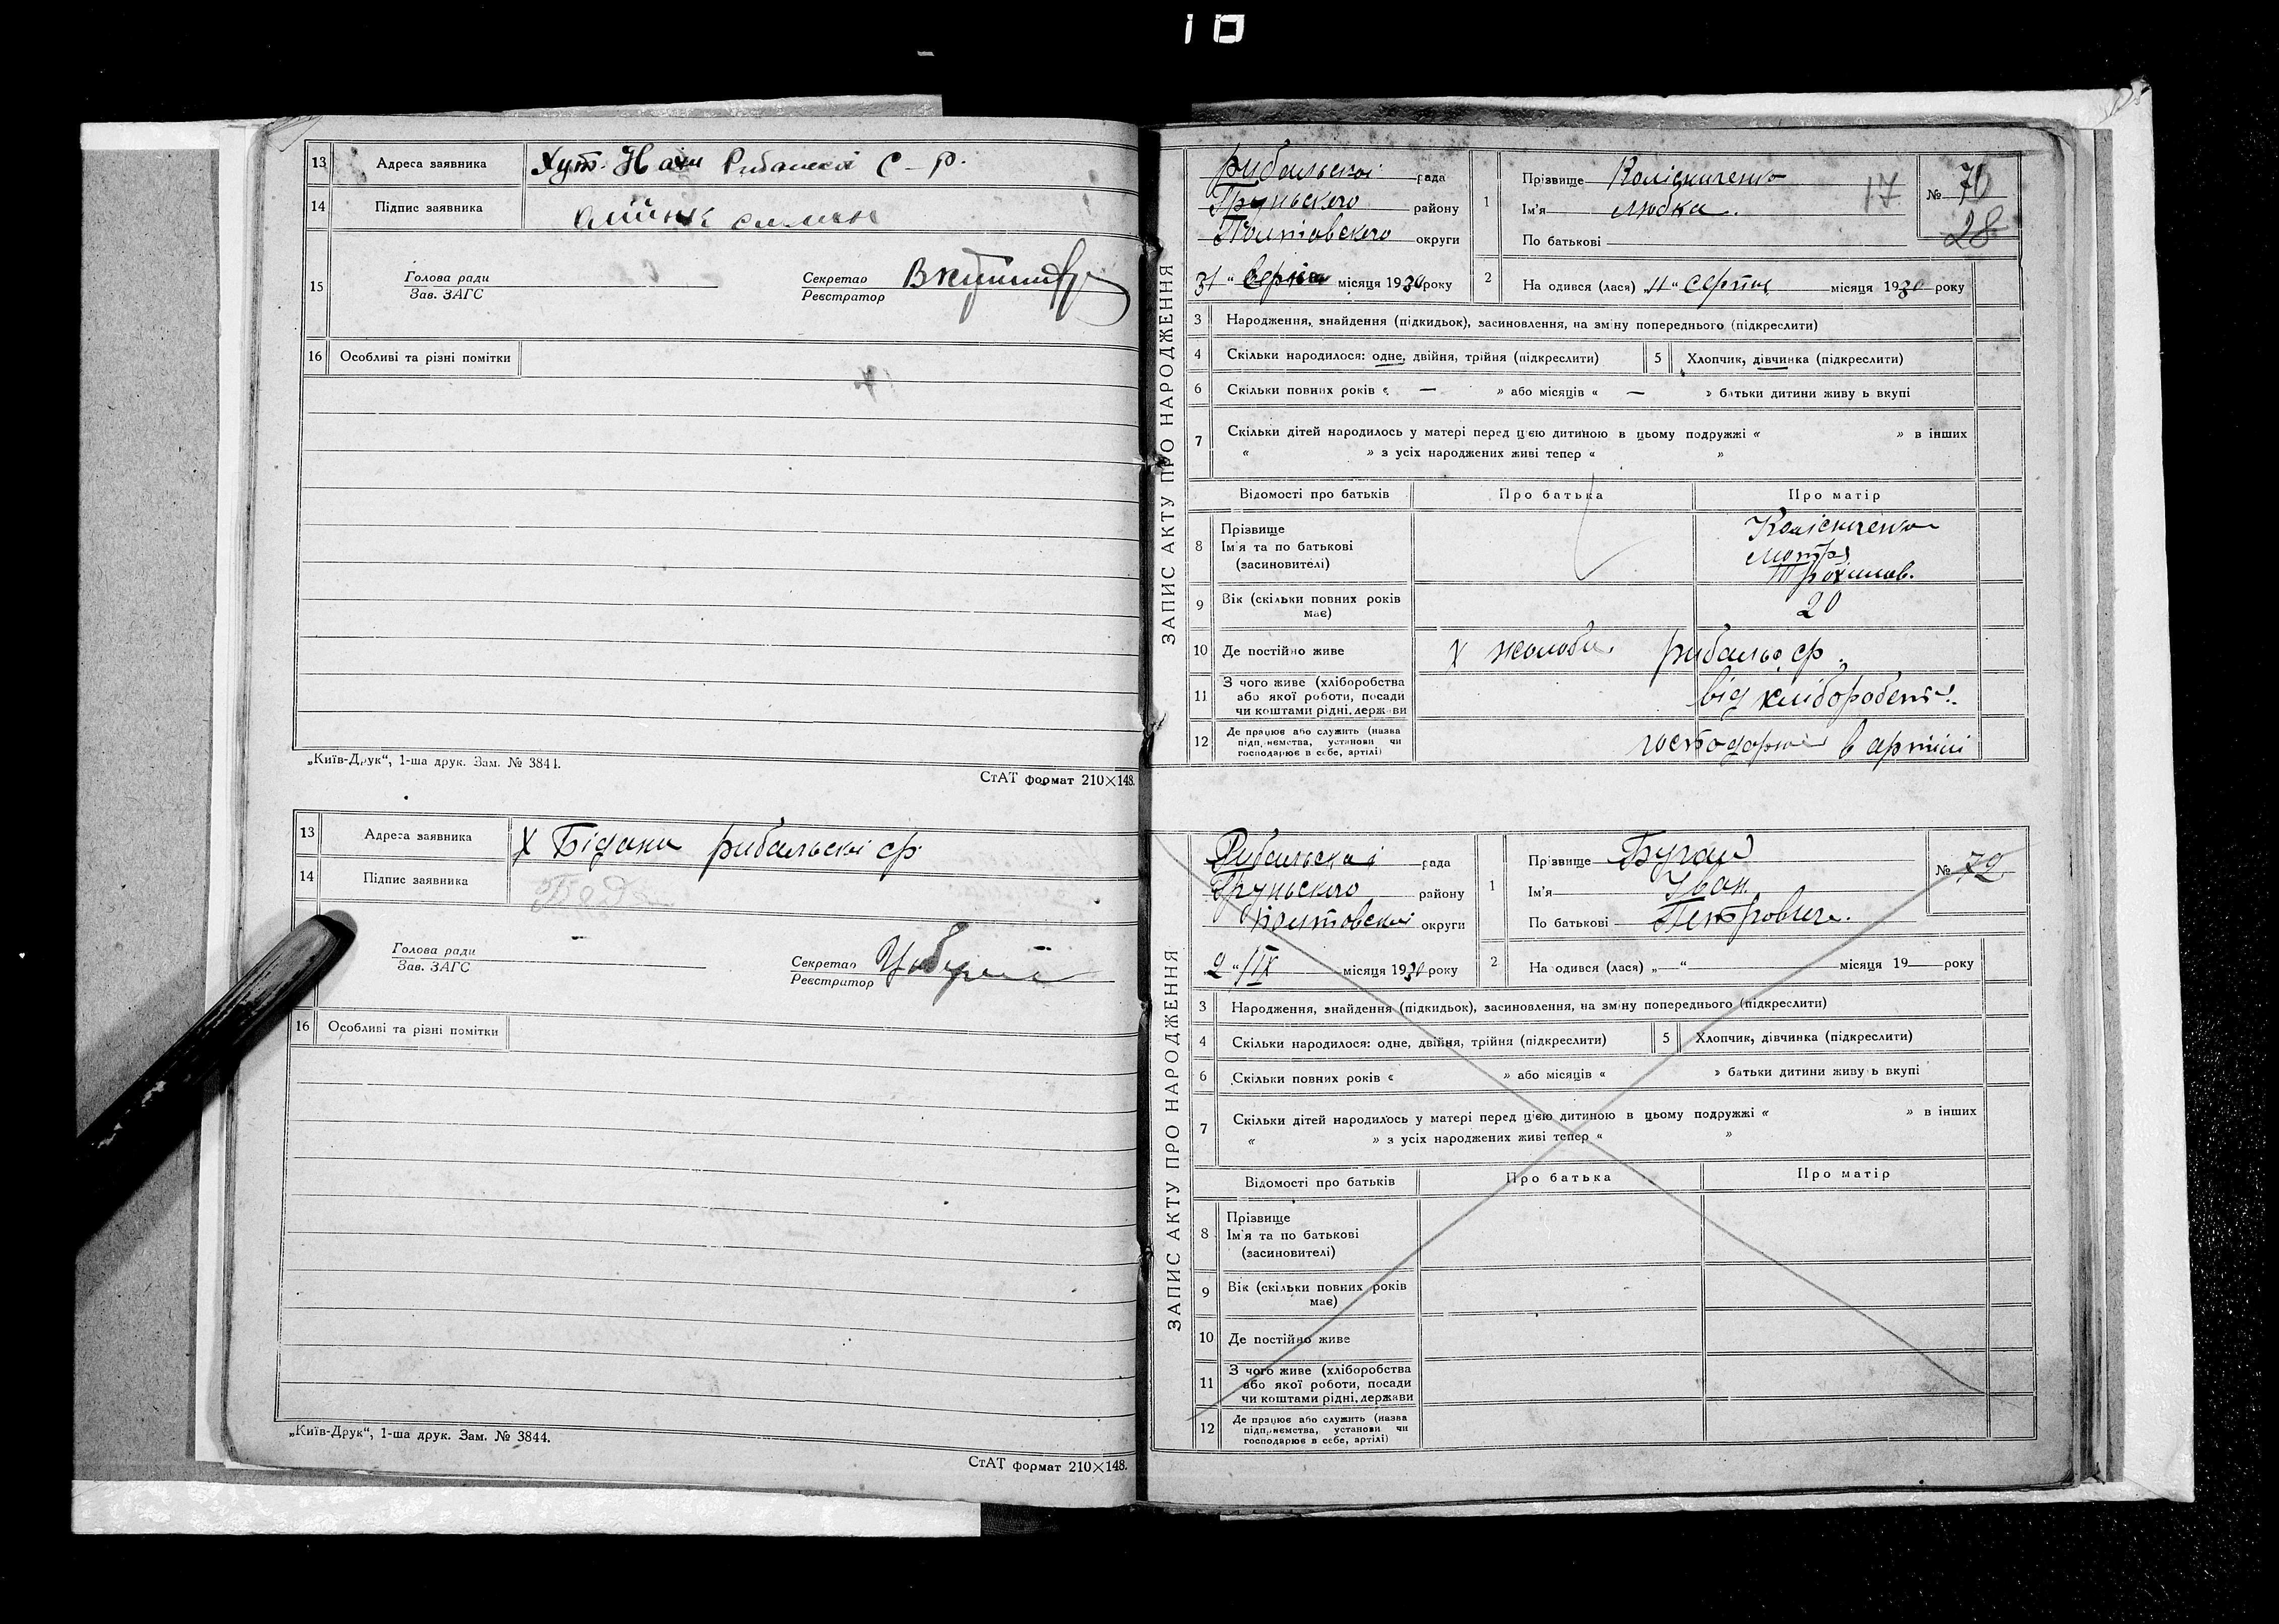 10
13 Адреса заявника Хут. Наш Рибальской С-Р.
14 Підпис заявника
15
Голова ради
Зав. ЗАГС
Секретар
Реєстратор
16 Особливі та різні помітки
„Київ-Друк“, 1-ша друк. Зам. № 3844.
СтАТ формат 210×148.
13 Адреса заявника Х Бідани рибальскі ср.
14 Підпис заявника
Голова ради
Зав. ЗАГС
Секретар
Реєстратор
16 Особливі та різні помітки
„Київ-Друк“, 1-ша друк. Зам. № 3844.
СтАТ формат 210×148.
ЗАПИС АКТУ ПРО НАРОДЖЕННЯ
рибальскої рада
Груньского району
Полтавского округи
31 “ Серпня місяця 1930 року
1 Прізвище Колісниченко
Ім'я Любка.
По батькові
17
№ 70
28
2 На одився (лася) „4“ серпня місяця 1930 року
3 Народження, знайдення (підкидьок), засиновлення, на зміну попереднього (підкреслити)
4 Скільки народилося: одне, двійня, трійня (підкреслити) 5 Хлопчик, дівчинка (підкреслити)
6 Скільки повних років « — » або місяців « — » батьки дитини живу ь вкупі
7 Скільки дітей народилось у матері перед цією дитиною в цьому подружжі « » в інших
« » з усіх народжених живі тепер « »
Відомості про батьків Про батька Про матір
8 Прізвище
Ім'я та по батькові
(засиновителі)
Колісниченко
Мотря
Трохимов.
9 Вік (скільки повних років має) 20
10 Де постійно живе х жолоби рибальс ср.
11 З чого живе (хліборобства
або якої роботи, посади
чи коштами рідні, держави
від хліборобств.
12 Де працює або служить (назва
підприємства, установи чи
господарює в себе, артілі)
господарює в артілі
ЗАПИС АКТУ ПРО НАРОДЖЕННЯ
Рибальскої рада
Груньского району
Полтовскої округи
2 “ IX місяця 1930 року
1 Прізвище
Ім'я Іван
По батькові Петрович.
№ 72
2 На одився (лася) „—“ місяця 19 року
3 Народження, знайдення (підкидьок), засиновлення, на зміну попереднього (підкреслити)
4 Скільки народилося: одне, двійня, трійня (підкреслити) 5 Хлопчик, дівчинка (підкреслити)
6 Скільки повних років « » або місяців « » батьки дитини живу ь вкупі
7 Скільки дітей народилось у матері перед цією дитиною в цьому подружжі « » в інших
« » з усіх народжених живі тепер « »
Відомості про батьків Про батька Про матір
8 Прізвище
Ім'я та по батькові
(засиновителі)
9 Вік (скільки повних років має)
10 Де постійно живе
11 З чого живе (хліборобства
або якої роботи, посади
чи коштами рідні, держави
12 Де працює або служить (назва
підприємства, установи чи
господарює в себе, артілі)